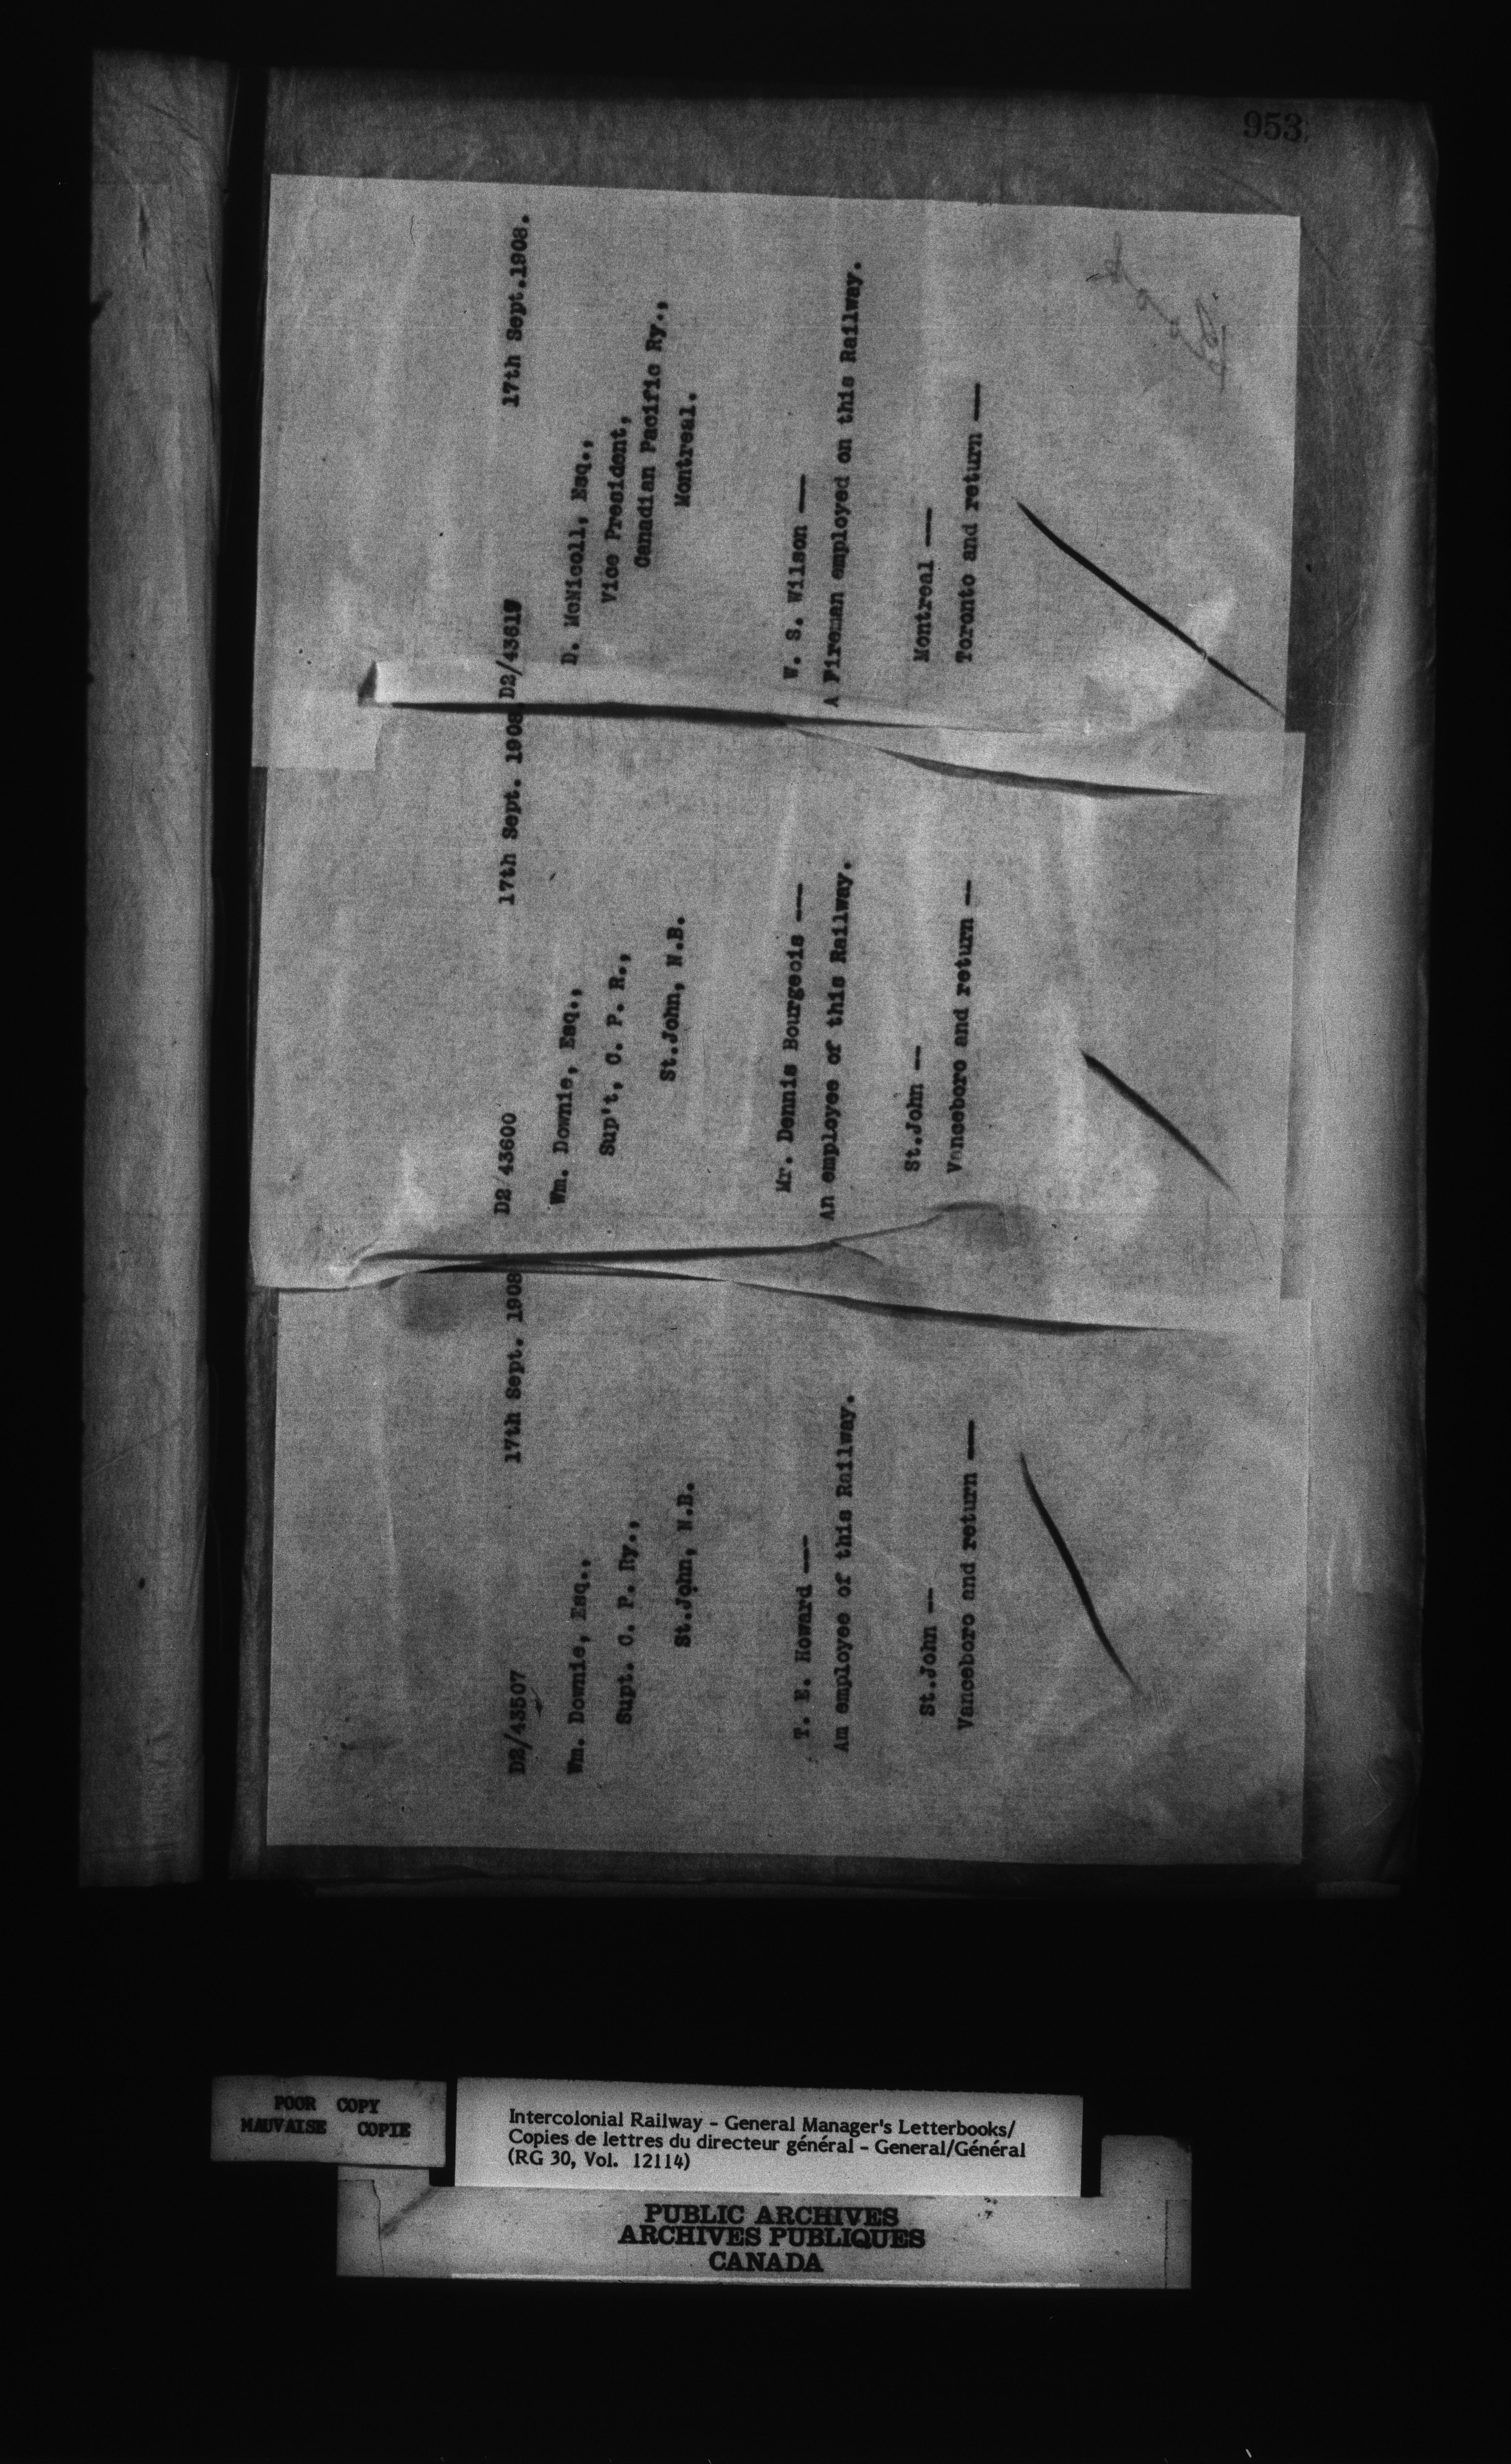 953
D2/43507 17th Sept. 1908
Wm. Downie, Esq.,
Supt. C. P. Ry.,
St.John, N.B.
T. E. Howard ---
Am employee of this Railway.
St.John --
Vanceboro and return ---
D2/43600 17th Sept. 1908
Wm. Downie, Esq.,
Sup't, C. P. R.,
St.John, N.B.
Mr. Dennis Bourgeois ---
An employee of this Railway.
St.John --
Vanceboro and return --
17th Sept.1908.
D. McNicoll, Esq.,
Vice President,
Canadian Pacific Ry.,
Montreal.
W. S. Wilson ---
A Fireman employed on this Railway.
Montreal ---
Toronto and return ---
POOR COPY
MAUVAISE COPIE
Intercolonial Railway - General Manager's Letterbooks/
Copies de lettres du directeur général - General/Général
(RG 30, Vol. 12114)
PUBLIC ARCHIVES
ARCHIVES PUBLIQUES
CANADA